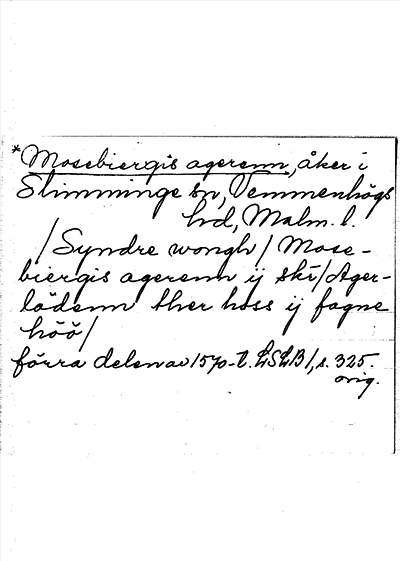 *Mosebiergis agerenn, åker i
Slimminge sn, Vemmenhögs
hd, Malm. l.
/Syndre wongh/ Mose-
biergis agerenn ij skr/Ager-
lödenn ther hoss ij fagne
höö/
förra delen av 1570-t. LSLB1, s. 325.
orig.